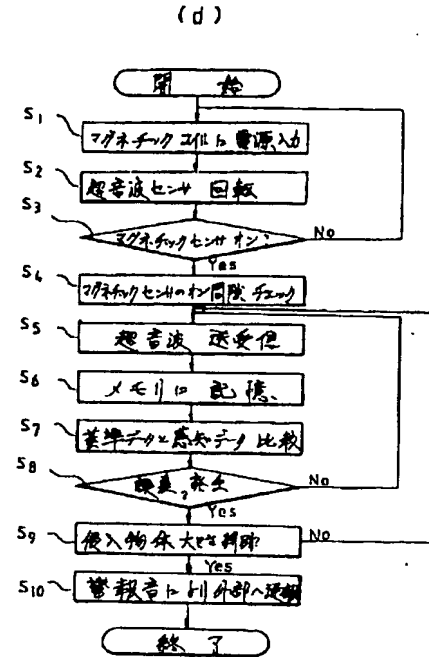 (d)
開 始
S1 マグネチックコイルに電源入力
S2 超音波センサ 回転
S3 マグネチックセンサオン?
No
Yes
S4 マグネチックセンサのオン間隔チェック
S5 超音波 送受信
S6 メモリに 記憶
S7 基準データと感知データ 比較
S8 誤差 発生
No
Yes
S9 侵入物体 大きさ
No
Yes
S10 警報音により外部へ
終 了